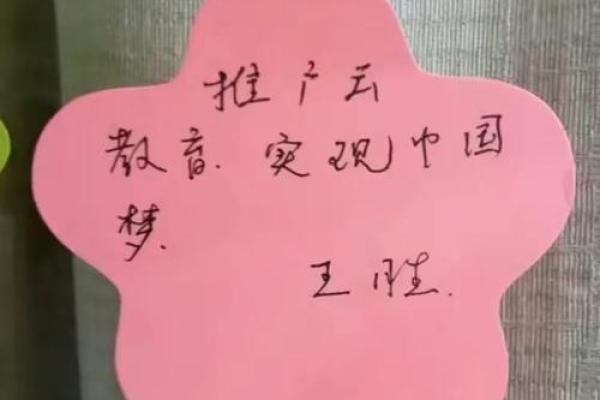 推广云
教育.实现中国
梦.
王胜.